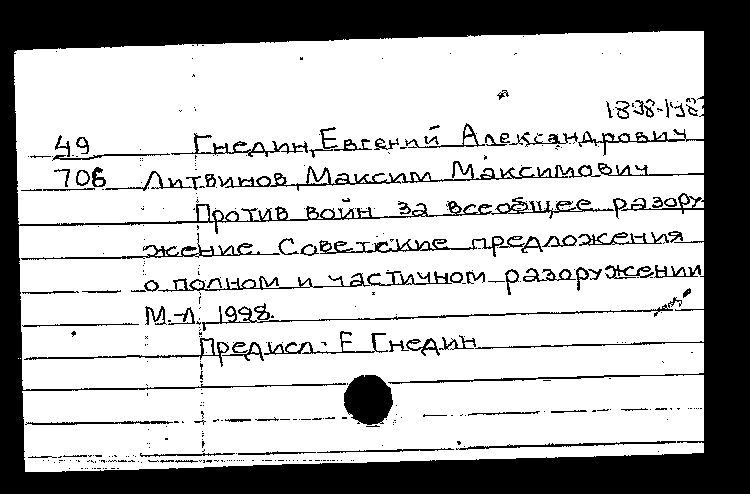 1898-198
49 Гнедин, Евгений Александрович
706 Литвинов, Максим Максимович
Против войн за всеобщее разору-
жение. Советские предложения
о полном и частичном разоружении
М.-Л., 1928.
Предисл. Е Гнедин